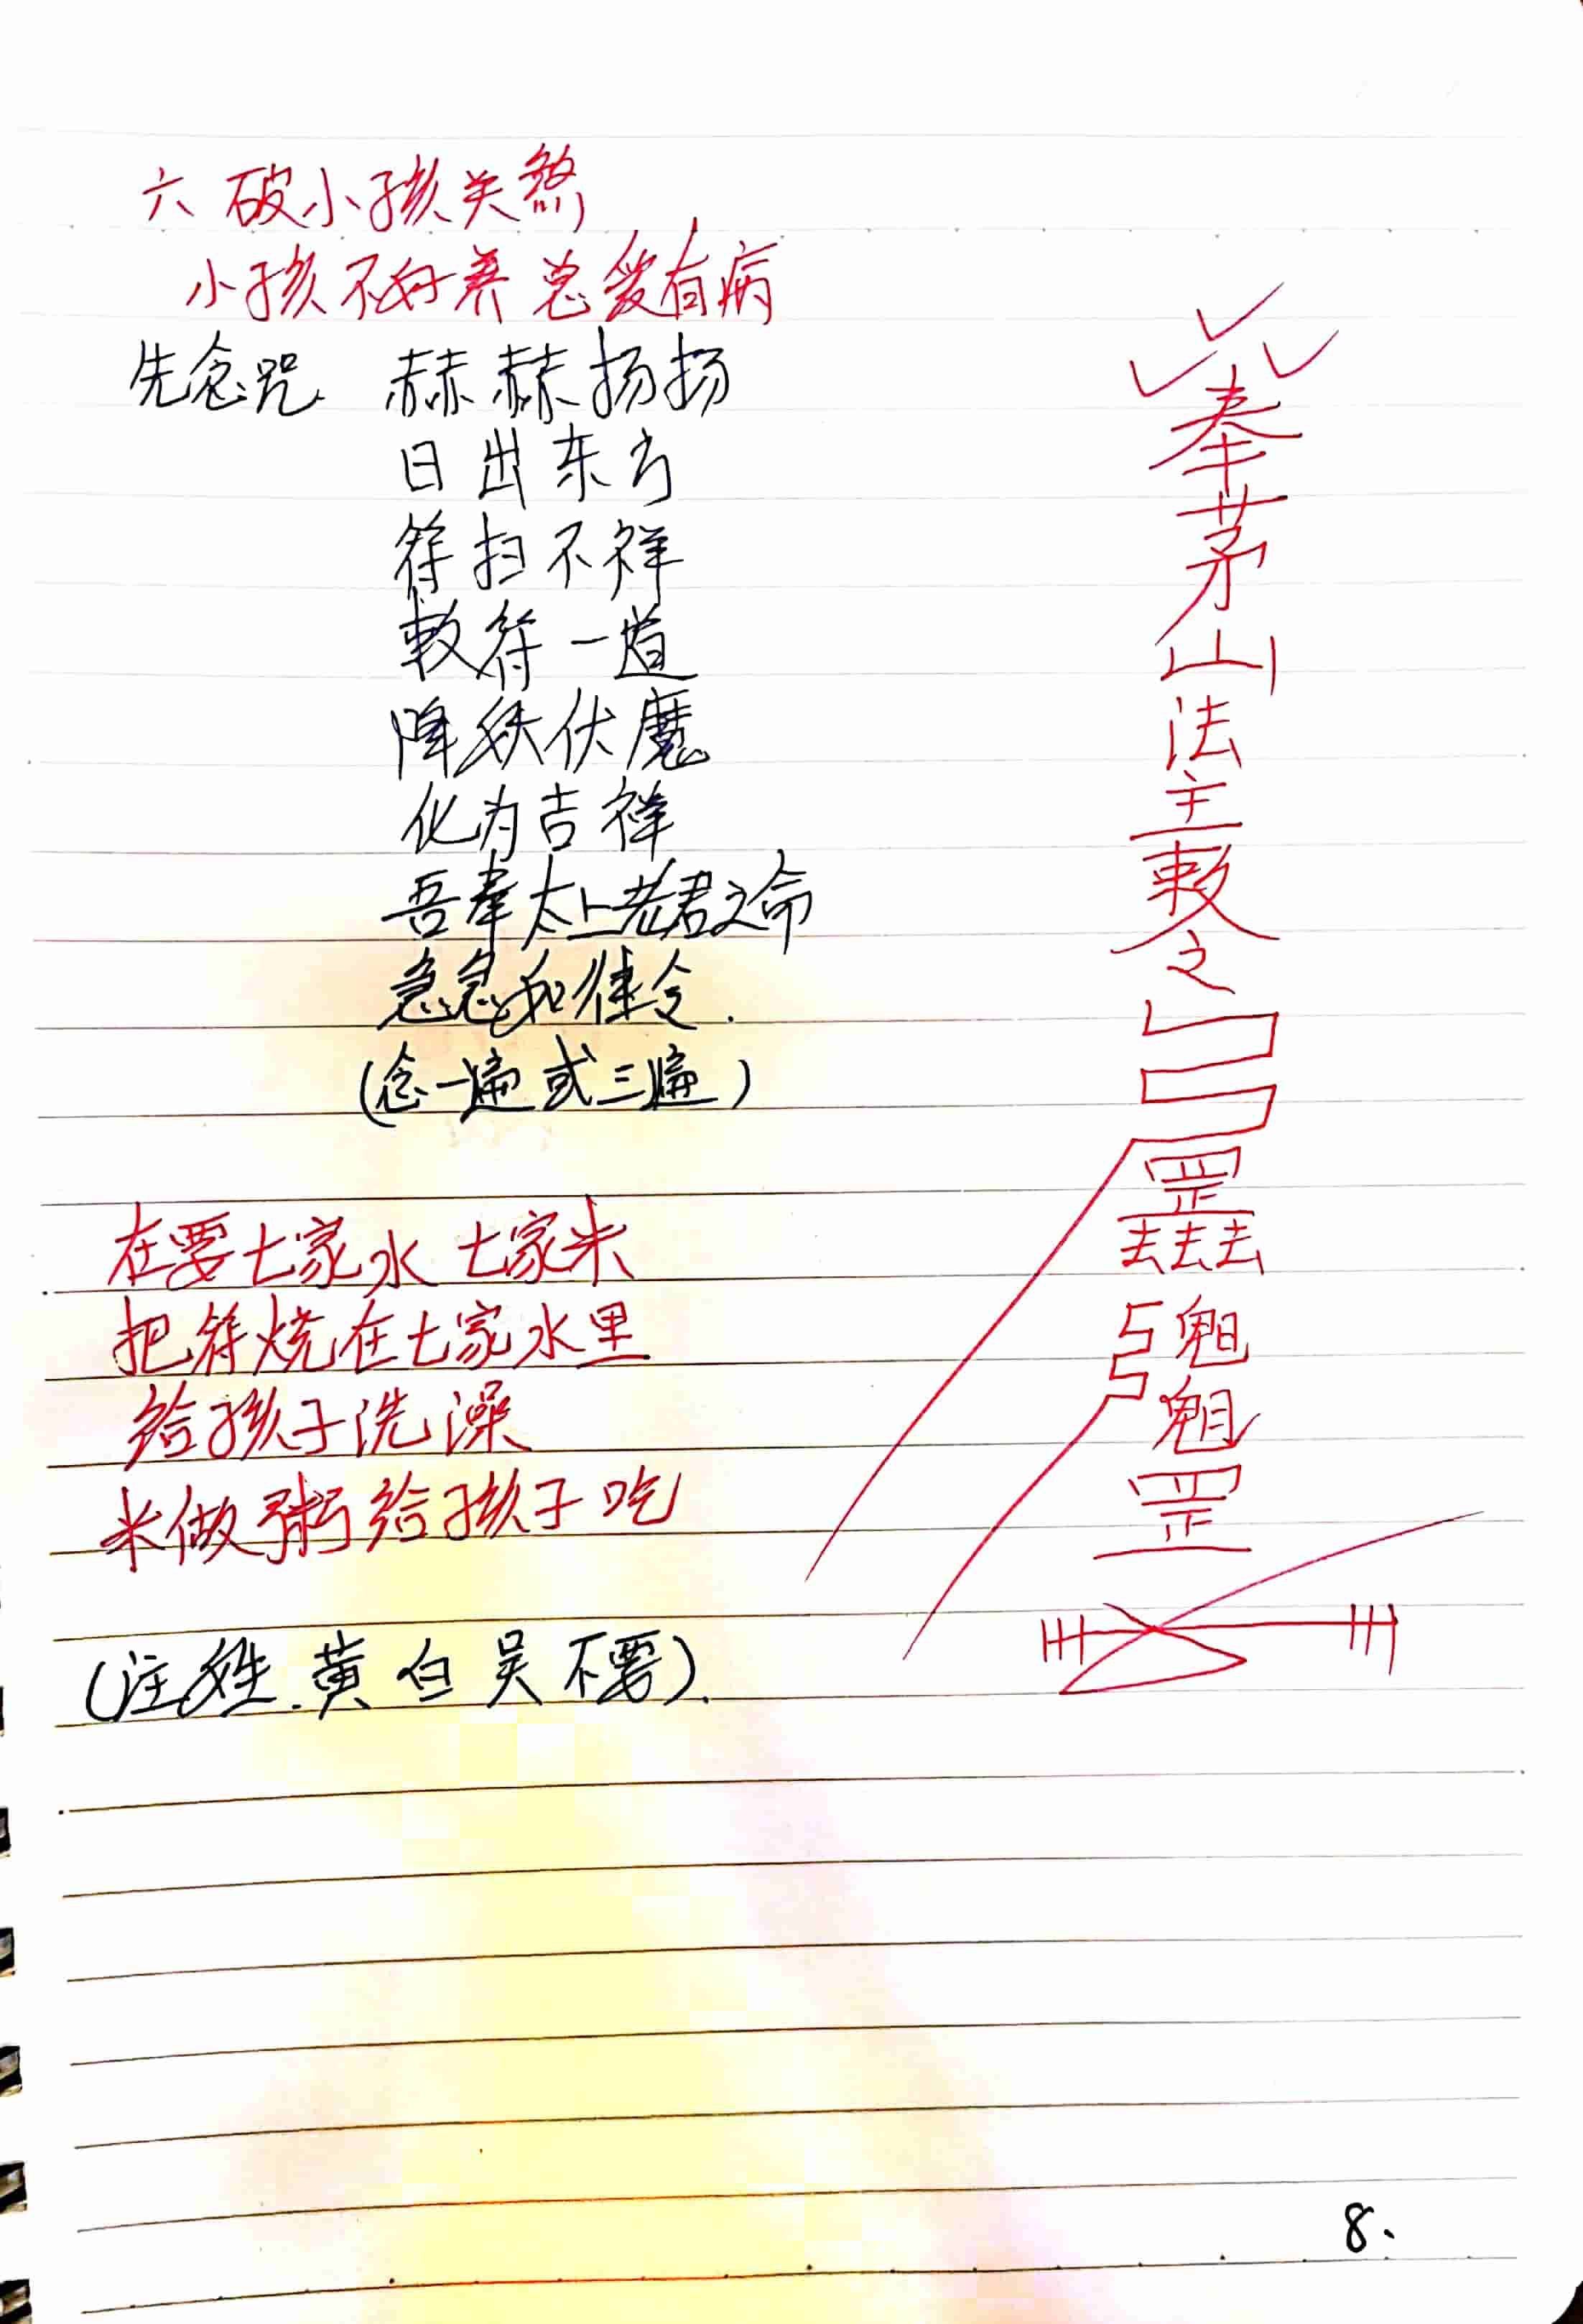 六 破小孩关煞
小孩不好养总爱有病
先念咒 赫赫扬扬
日出东方
符扫不祥
敕符一道
降妖伏魔
化为吉祥
吾奉太上老君之命
急急如律令.
(念一遍或三遍)
在要七家水 七家米
把符烧在七家水里
给孩子洗澡
米做粥给孩子吃
(注姓.黄 白 吴 不要).
奉
茅
山
法
主
敕
之
罡
去去去
魁
魁
罡
8.